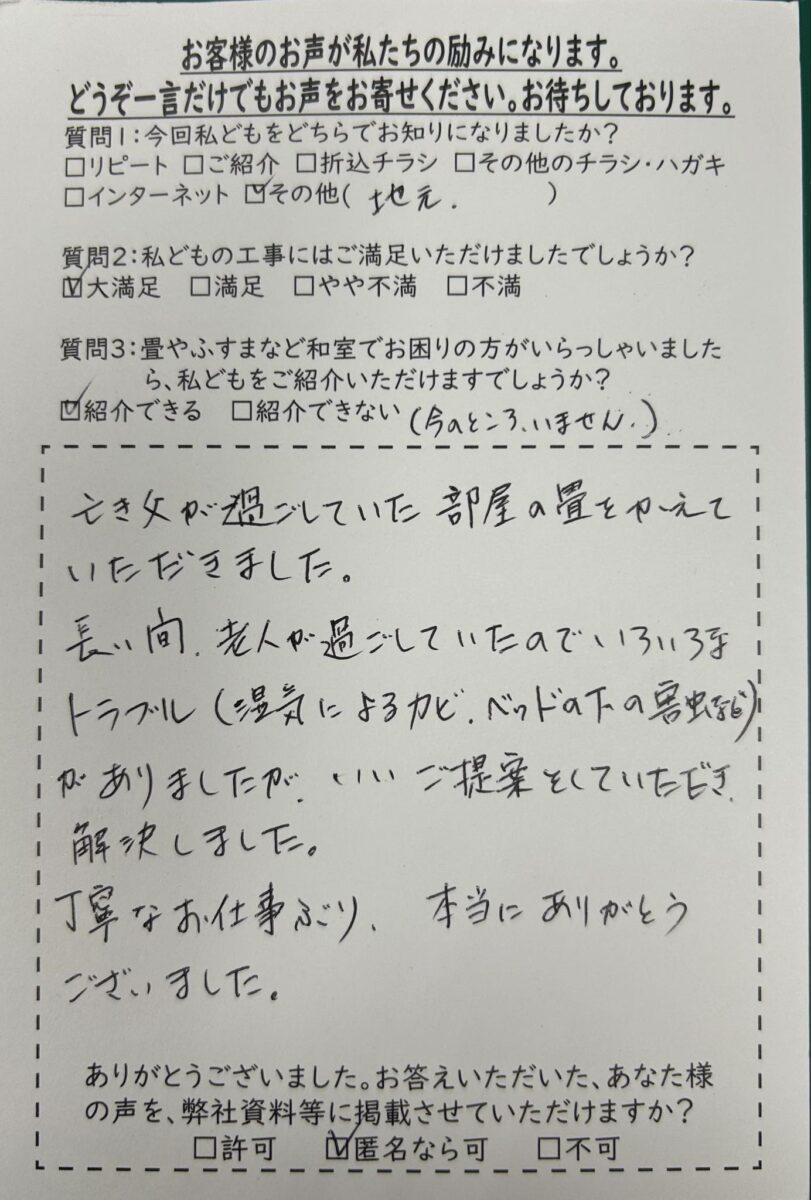 お客様のお声が私たちの励みになります。
どうぞ一言だけでもお声をお寄せください。お待ちしております。
質問1:今回私どもをどちらでお知りになりましたか?
□リピート □ご紹介 □折込チラシ □その他のチラシ・ハガキ
□インターネット ☑その他( 地元. )
質問2:私どもの工事にはご満足いただけましたでしょうか?
☑大満足 □満足 □やや不満 □不満
質問3:畳やふすまなど和室でお困りの方がいらっしゃいました
ら、私どもをご紹介いただけますでしょうか?
☑紹介できる □紹介できない (今のところ、いません.)
亡き父が過ごしていた部屋の畳をかえて
いただきました。
長い間、老人が過ごしていたのでいろいろな
トラブル(湿気によるカビ、ベッドの下の害虫など)
がありましたが、いいご提案をしていただき、
解決しました。
丁寧なお仕事ぶり、本当にありがとう
ございました。
ありがとうございました。お答えいただいた、あなた様
の声を、弊社資料等に掲載させていただけますか?
□許可 ☑匿名なら可 □不可